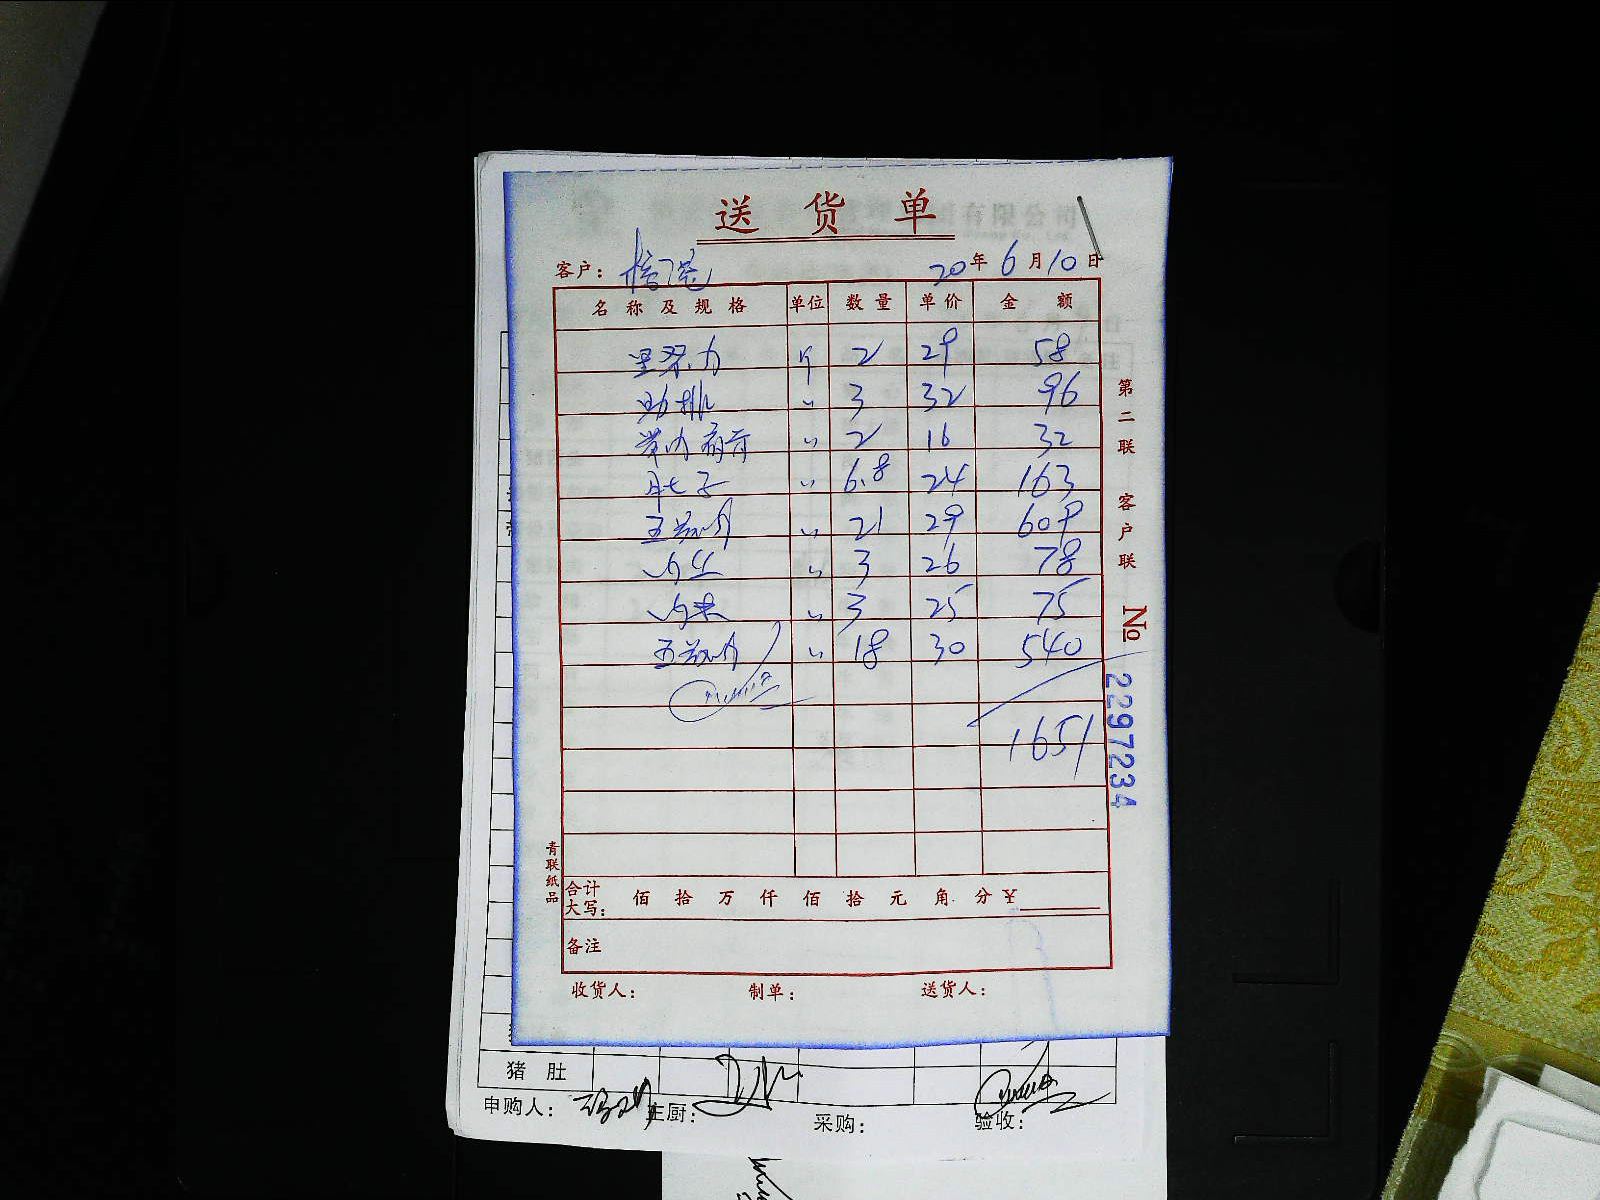 送货单
客户: 20年6月10日
名称及规格 单位 数量 单价 金额
里脊 斤 2 29 58
肋排 〃 3 32 96
带肉 〃 2 16 32
肚子 〃 6.8 24 163
五花肉 〃 21 29 609
肉丝 〃 3 26 78
肉末 〃 3 25 75
五花肉 〃 18 30 540
1651
合计大写: 佰 拾 万 仟 佰 拾 元 角 分 ¥
备注
收货人: 制单: 送货人:
第二联 客户联
No 2297234
青联纸品
有限公司
猪肚
申购人: 主厨: 采购: 验收: